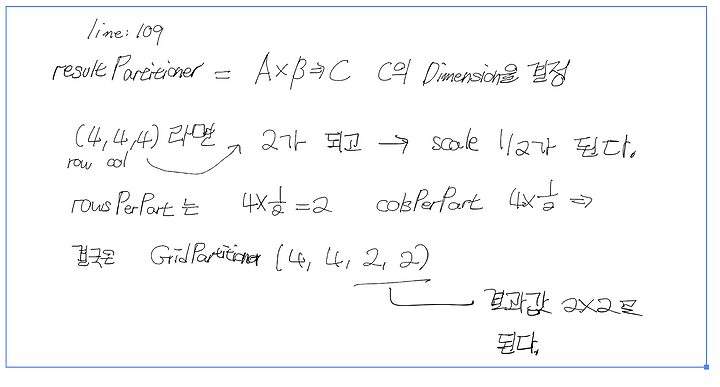 line: 109
resultPartitioner = A×B⇒C C의 Dimension을 결정
(4,4,4) 라면 2가 되고 → scale 1/2가 된다.
row col
rowsPerPart는 4×1/2=2 colsPerPart 4×1/2 ⇒
결국은 GridPartitioner (4, 4, 2, 2)
결과값 2×2로
된다.